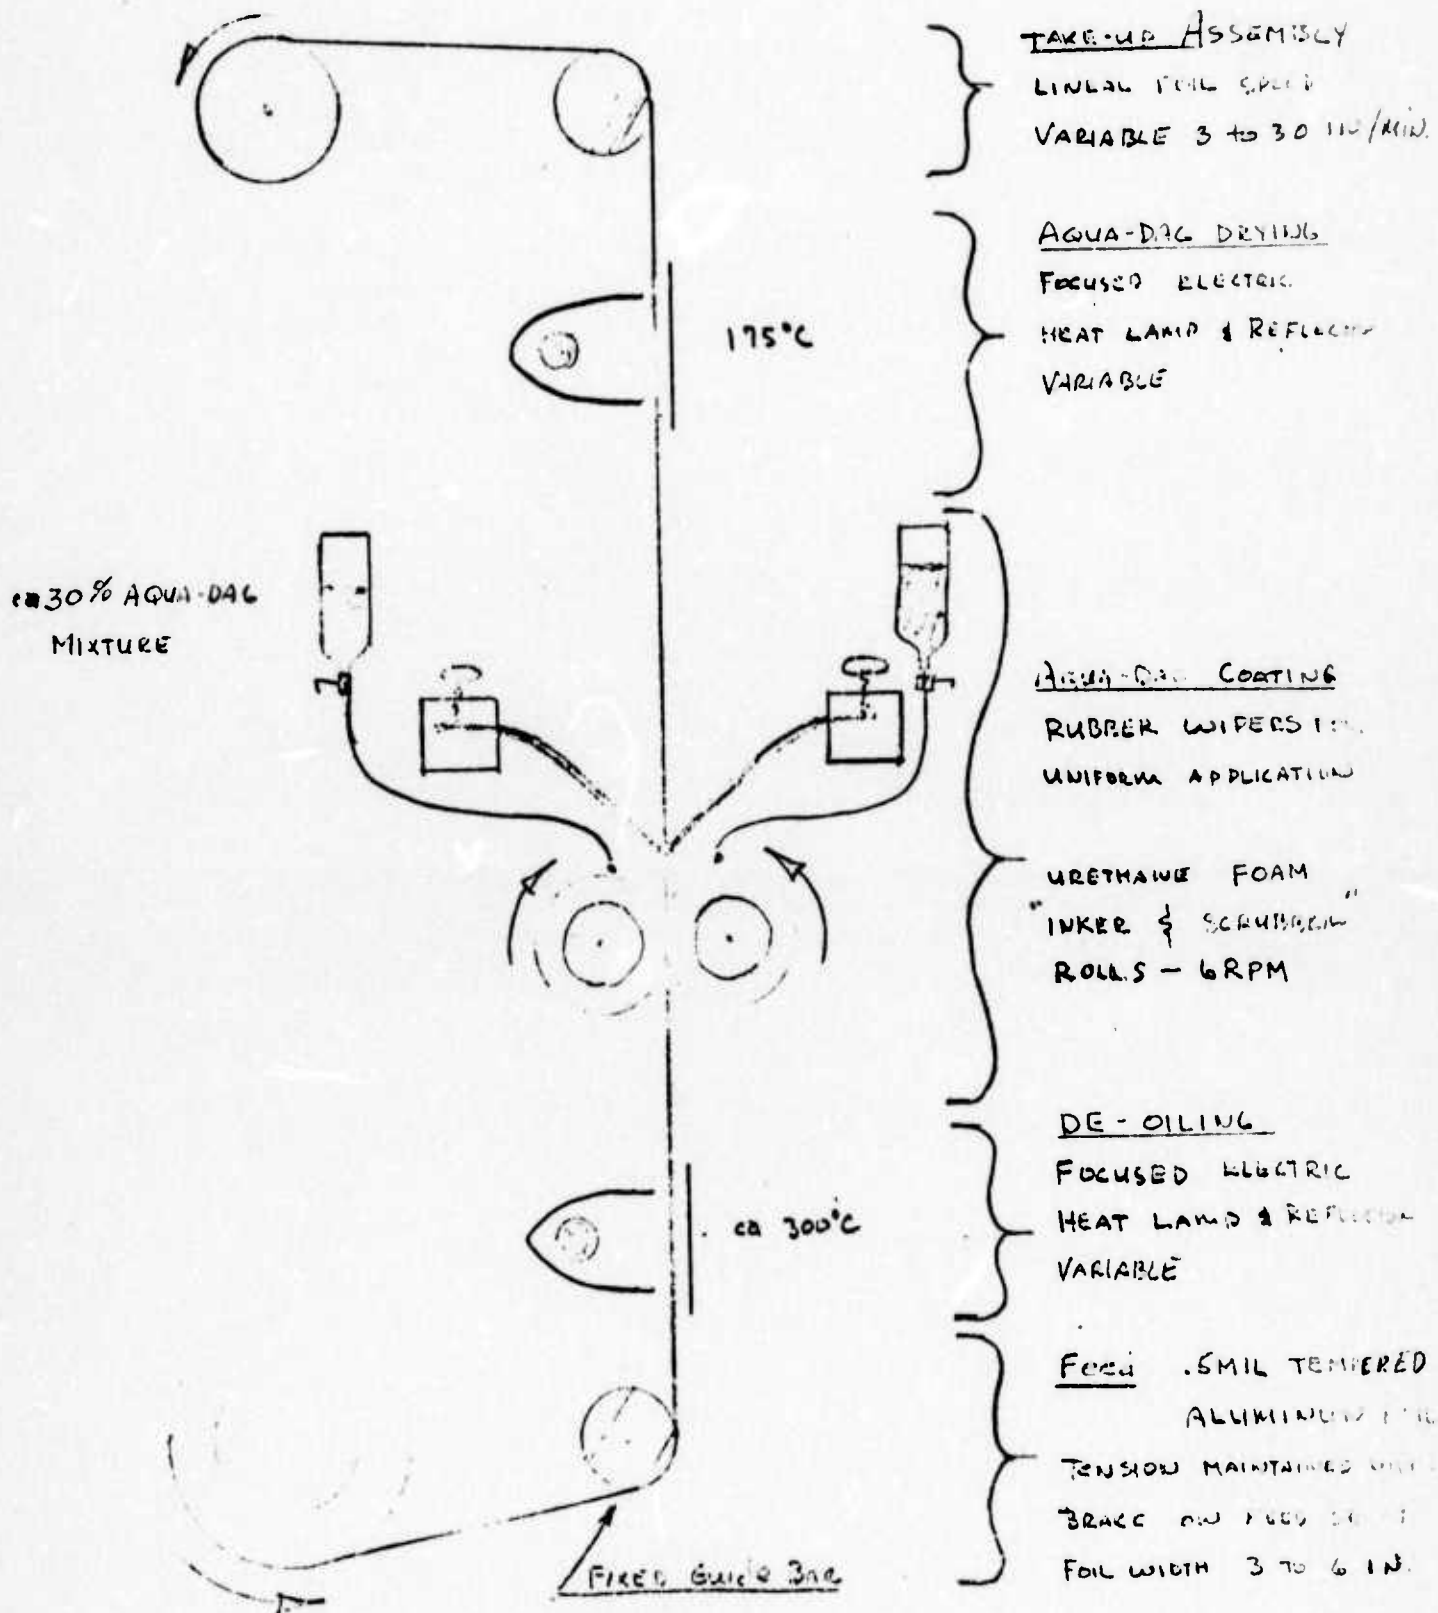 TAKE-UP ASSEMBLY
LINEAL FOIL SPEED
VARIABLE 3 to 30 IN/MIN.
AQUA-DAG DRYING
FOCUSED ELECTRIC
HEAT LAMP & REFLECTOR
VARIABLE
175°C
ca 30% AQUA-DAG
MIXTURE
AQUA-DAG COATING
RUBBER WIPERS
UNIFORM APPLICATION
URETHANE FOAM
"INKER & SCRUBBER"
ROLLS - 6 RPM
DE-OILING
FOCUSED ELECTRIC
HEAT LAMP & REFLECTOR
VARIABLE
ca 300°C
FEED .5MIL TEMPERED
ALUMINUM FOIL
TENSION MAINTAINED
BRAKE ON FEED
FOIL WIDTH 3 TO 6 IN.
FIXED GUIDE BAR